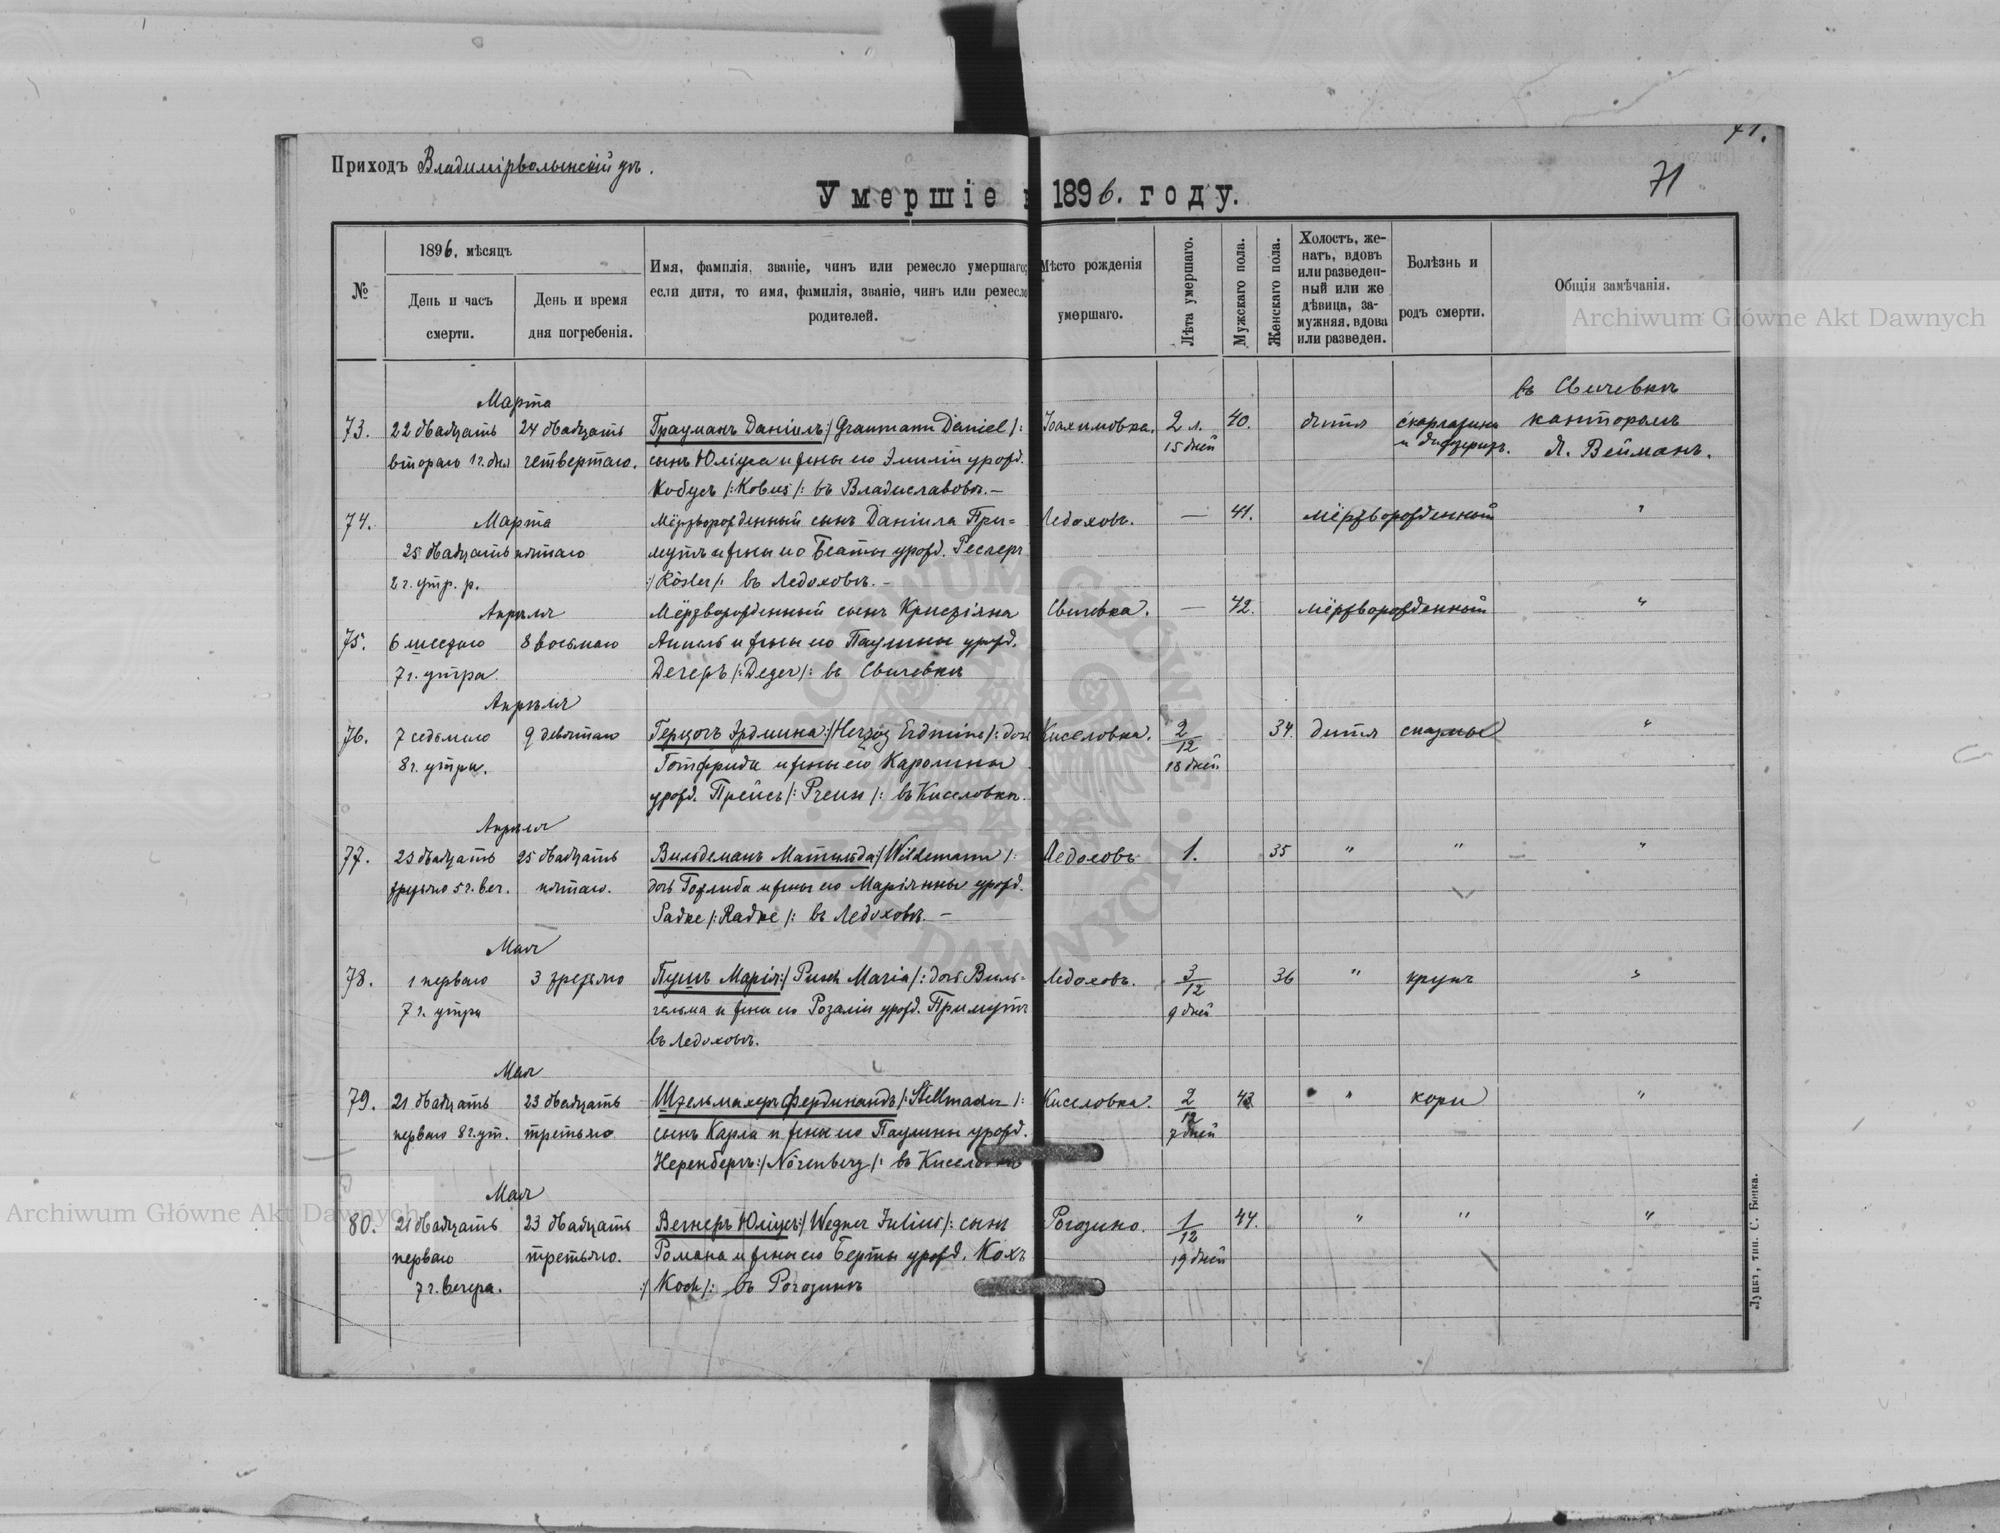 71.
Приходъ Владимірволынскій уъ.
71
Умершіе 1896. году.
№
1896. мѣсяцъ
День и часъ смерти.
День и время дня погребенія.
Имя, фамилія, званіе, чинъ или ремесло умершаго;
если дитя, то имя, фамилія, званіе, чинъ или ремесло
родителей.
Мѣсто рожденія
умершаго.
Лѣта умершаго.
Мужскаго пола.
Женскаго пола.
Холостъ, же-
натъ, вдовъ
или разведен-
ный или же
дѣвица, за-
мужняя, вдова
или разведен.
Болѣзнь и
родъ смерти.
Общія замѣчанія.
Archiwum Główne Akt Dawnych
въ Свичевкѣ
Марта
73. 22 двадцать 24 двадцать Грауманъ Даніилъ:/Graumann Daniel/: Іоахимовка. 2 л. 40. дитя скарлатина канторомъ
втораго 1 г. дня четвертаго. сынъ Юліуса и жены его Эмиліи урожд. 15 дней и дифтеритъ. А. Вейманъ.
Кобусъ /:Kobus/: въ Владиславовкѣ. —
74. Марта Мёртворожденный сынъ Даніила При= Ледоховъ. — 41. мёртворожденный "
25 двадцать пятаго мутъ и жены его Беаты урожд. Реслеръ
2 г. утр. р. :/Rösler/: въ Ледоховѣ. —
Апрѣля Мёртворожденный сынъ Христіана Свичевка. — 42. мёртворожденный "
75. 6 шестаго 8 восьмаго Аппель и жены его Паулины урожд.
7 г. утра. Дегеръ /:Deger/: въ Свичевкѣ
Апрѣля
76. 7 седьмаго 9 девятаго Герцогъ Эрдмина:/Herzog Erdmine/: дочь Киселовка. 2/12 34. дитя спазмы "
8 г. утра. Готфрида и жены его Каролины 18 дней
урожд. Прейсъ /: Preus /: въ Киселовкѣ.
Апрѣля
77. 23 двадцать 25 двадцать Вильдеманъ Матильда:/Wildemann/: Ледоховъ 1. 35 " " "
третьяго 5 г. веч. пятаго. дочь Готлиба и жены его Маріянны урожд.
Радке /:Radke/: въ Ледоховѣ. —
Мая
78. 1 перваго 3 третьяго Пушъ Марія:/ Pusch Maria/: дочь Виль- Ледоховъ. 3/12 36 " крупъ "
7 г. утра гельма и жены его Розаліи урожд. Примутъ 9 дней
въ Ледоховѣ.
Мая
79. 21 двадцать 23 двадцать Штельмахеръ Фердинандъ /:Stellmacher/: Киселовка. 2/12 43 " кори "
перваго 8 г. ут. третьяго сынъ Карла и жены его Паулины урожд. 7 дней
Неренбергъ:/Nörenberg/: въ Киселовкѣ
Мая
80. 21 двадцать 23 двадцать Вегнеръ Юліусъ:/ Wegner Julius/: сынъ Рогозино. 1/12 44. " " "
перваго третьяго. Романа и жены его Берты урожд. Кохъ 19 дней
7 г. вечера. :/ Koch/: въ Рогозинѣ
Archiwum Główne Akt Dawnych
Луцкъ, тип. С. Бонка.